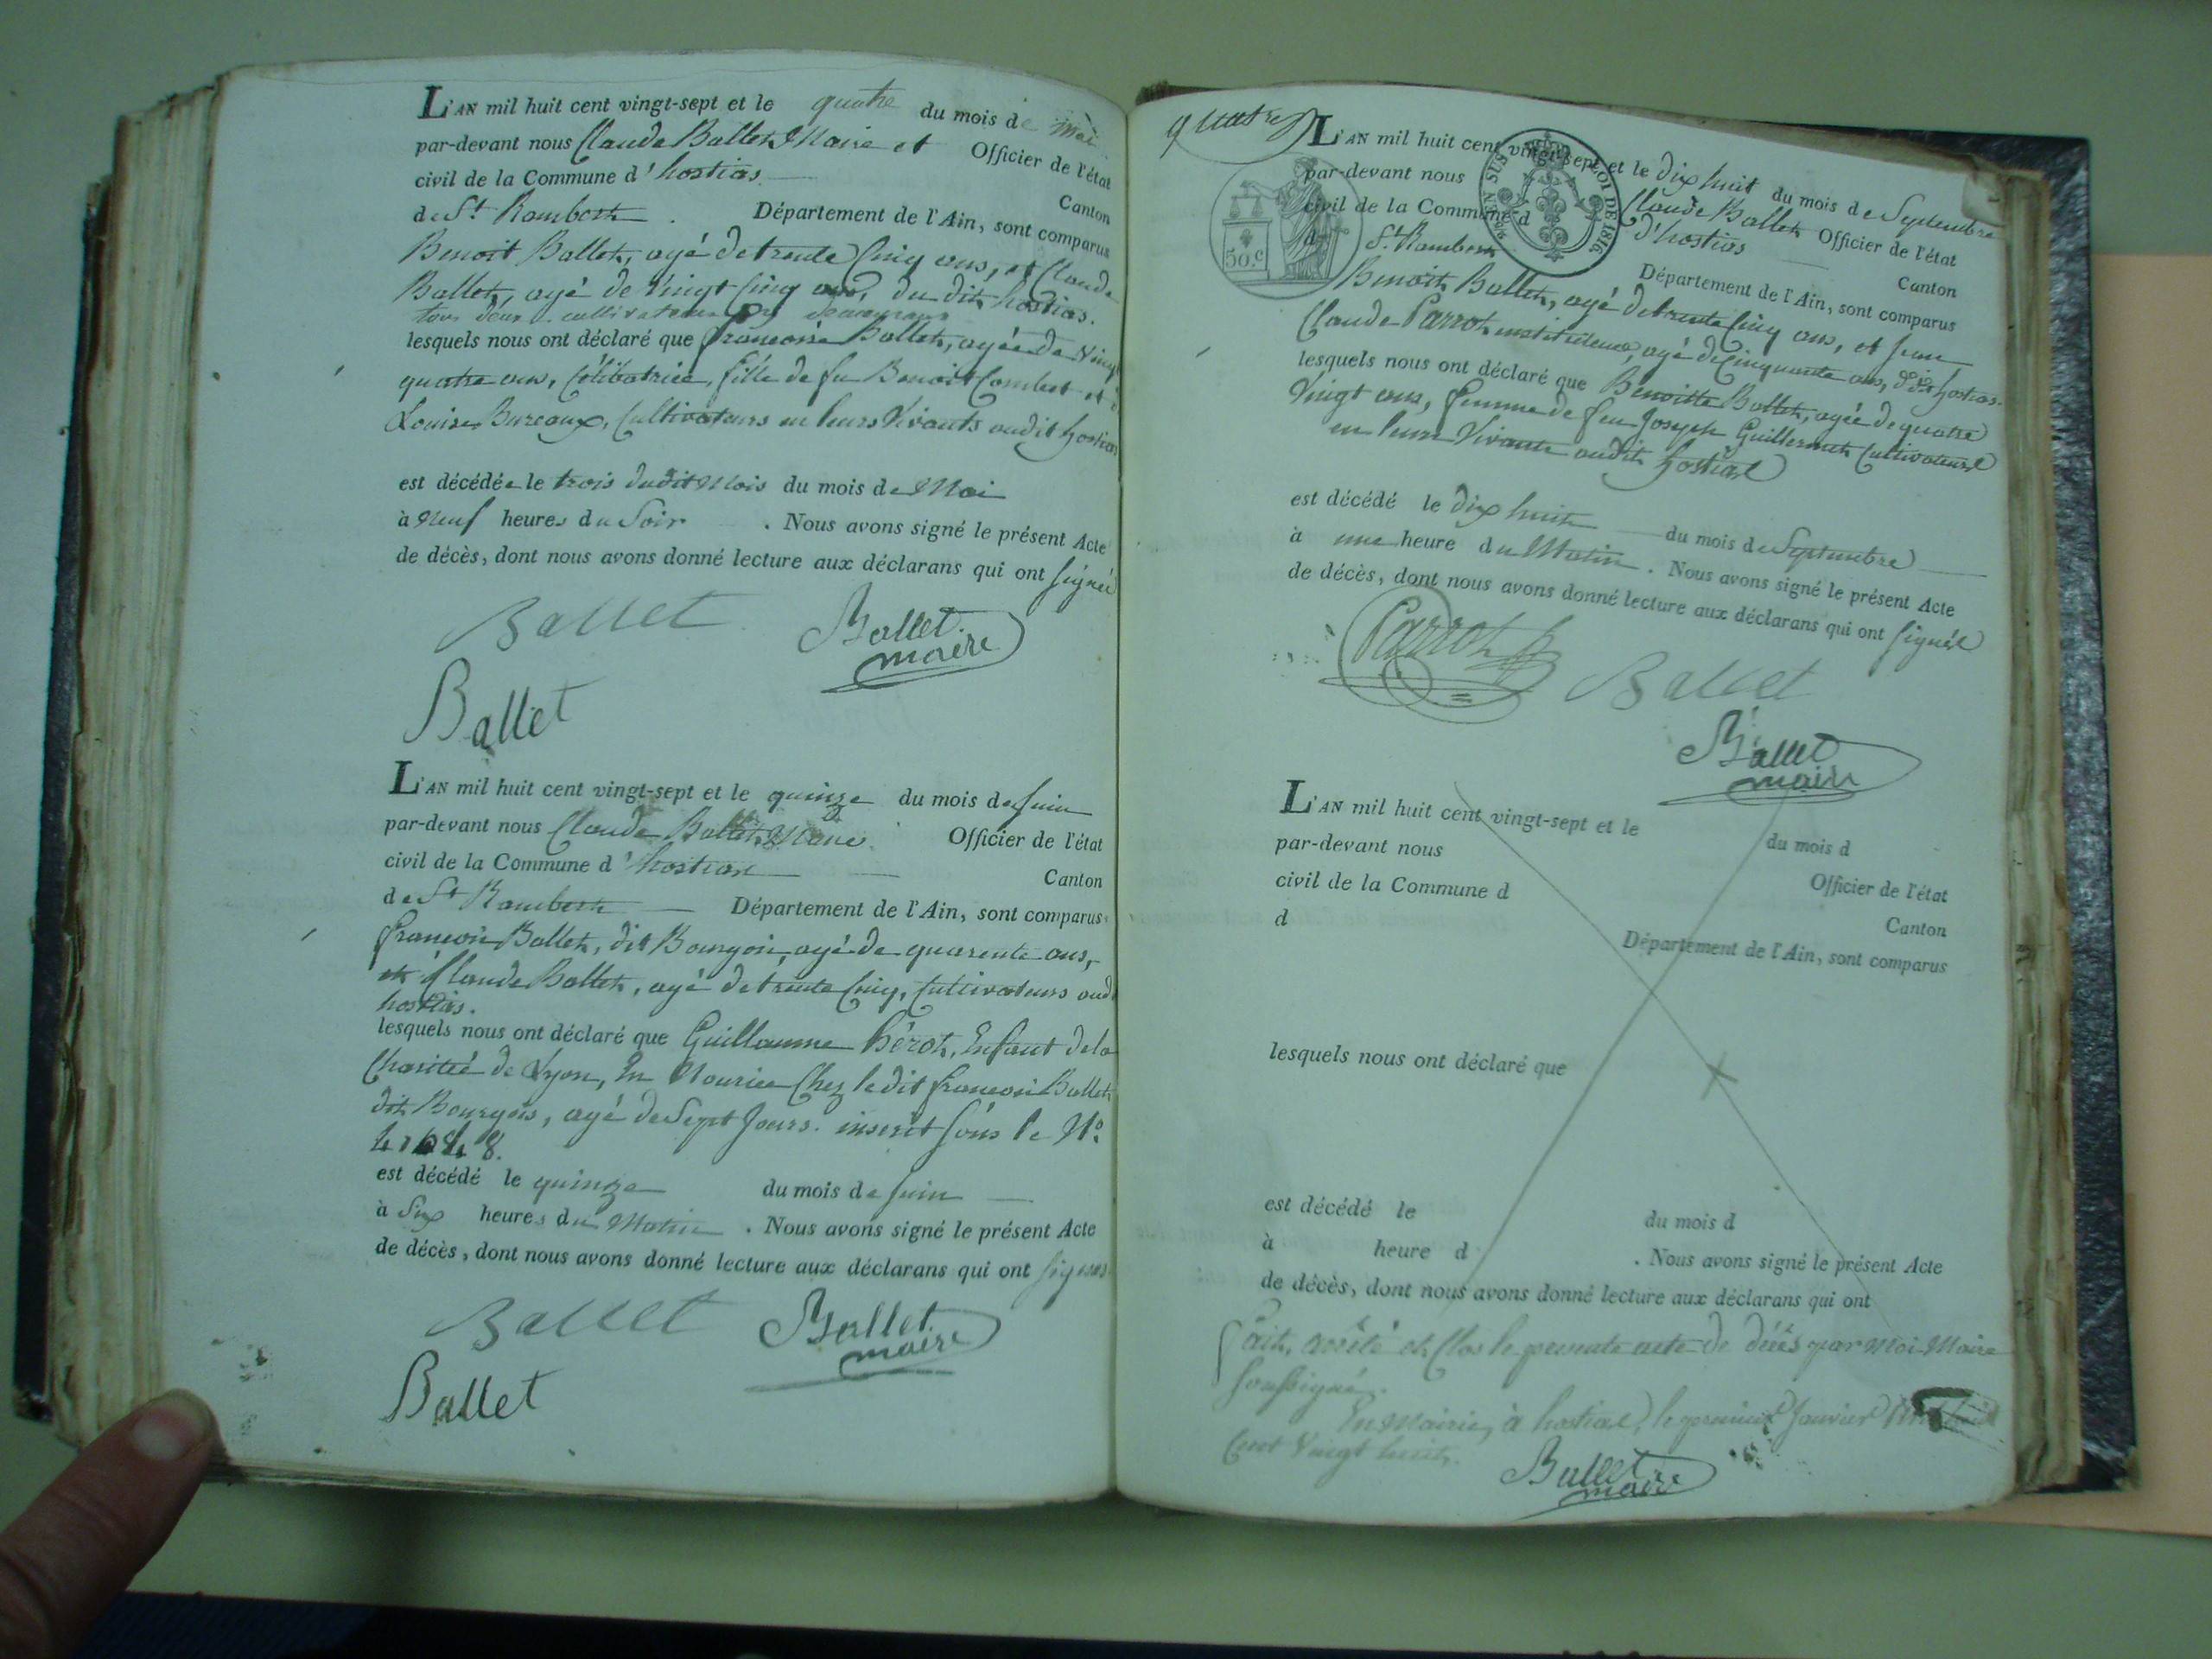 L'AN mil huit cent vingt-sept et le quatre du mois de Mai
par-devant nous Claude Ballet Maire et Officier de l'état
civil de la Commune d'hostias Canton
de St Rambert. Département de l'Ain, sont comparus
Benoit Ballet, agé de trente Cinq ans, et Claude
Ballet, agé de Vingt Cinq ans, du dit hostias.
tous deux cultivateurs y
lesquels nous ont déclaré que françoise Ballet, agée de Vingt
quatre ans, Célibatrice, fille de fu Benoit Combet et
Louise Bureaux, Cultivateurs en leurs Vivants audit hostias
est décédée le trois dudit Mois du mois de Mai
à Neuf heures du Soir. Nous avons signé le présent Acte
de décès, dont nous avons donné lecture aux déclarans qui ont signé
Ballet Ballet
maire
Ballet
L'AN mil huit cent vingt-sept et le quinze du mois de Juin
par-devant nous Claude Ballet Maire Officier de l'état
civil de la Commune d'hostias Canton
de St Rambert Département de l'Ain, sont comparus
françois Ballet, dit Bourgois, agé de quarente ans,
et Claude Ballet, agé de trente Cinq, Cultivateurs aud
hostias.
lesquels nous ont déclaré que Guillaume hérot, Enfant de la
Charitié de Lyon, En Nourice Chez le dit françois Ballet
dit Bourgois, agé de Sept Jours. inserit sous le No
est décédé le quinze du mois de Juin
à Six heures du Matin. Nous avons signé le présent Acte
de décès, dont nous avons donné lecture aux déclarans qui ont signés
Ballet Ballet
maire
Ballet
quatre
L'AN mil huit cent vingt-sept et le dix huit du mois de Septembre
par-devant nous Claude Ballet Officier de l'état
civil de la Commune d d'hostias Canton
d St Rambert Département de l'Ain, sont comparus
50.c
EN SUS LOI DE 1816.
Benoit Ballet, agé de trente Cinq ans, et Jean
Claude Parrot instituteur, agé de Cinquante ans, dudit hostias.
lesquels nous ont déclaré que Benoitte Ballet, agée de quatre
Vingt ans, femme de feu Joseph Guillermet Cultivateurs
en leurs Vivants audit hostias
est décédé le dix huit du mois de Septembre
à une heure du Matin. Nous avons signé le présent Acte
de décès, dont nous avons donné lecture aux déclarans qui ont signés
Parrot Ballet
Ballet
maire
L'AN mil huit cent vingt-sept et le du mois d
par-devant nous Officier de l'état
civil de la Commune d Canton
d Département de l'Ain, sont comparus
lesquels nous ont déclaré que
est décédé le du mois d
à heure d. Nous avons signé le présent Acte
de décès, dont nous avons donné lecture aux déclarans qui ont
fait, arrêté et Clos le présente acte de décès par Moi Maire
soussigné.
En Mairie, à hostias, le premier Janvier
Cent Vingt huit.
Ballet
maire